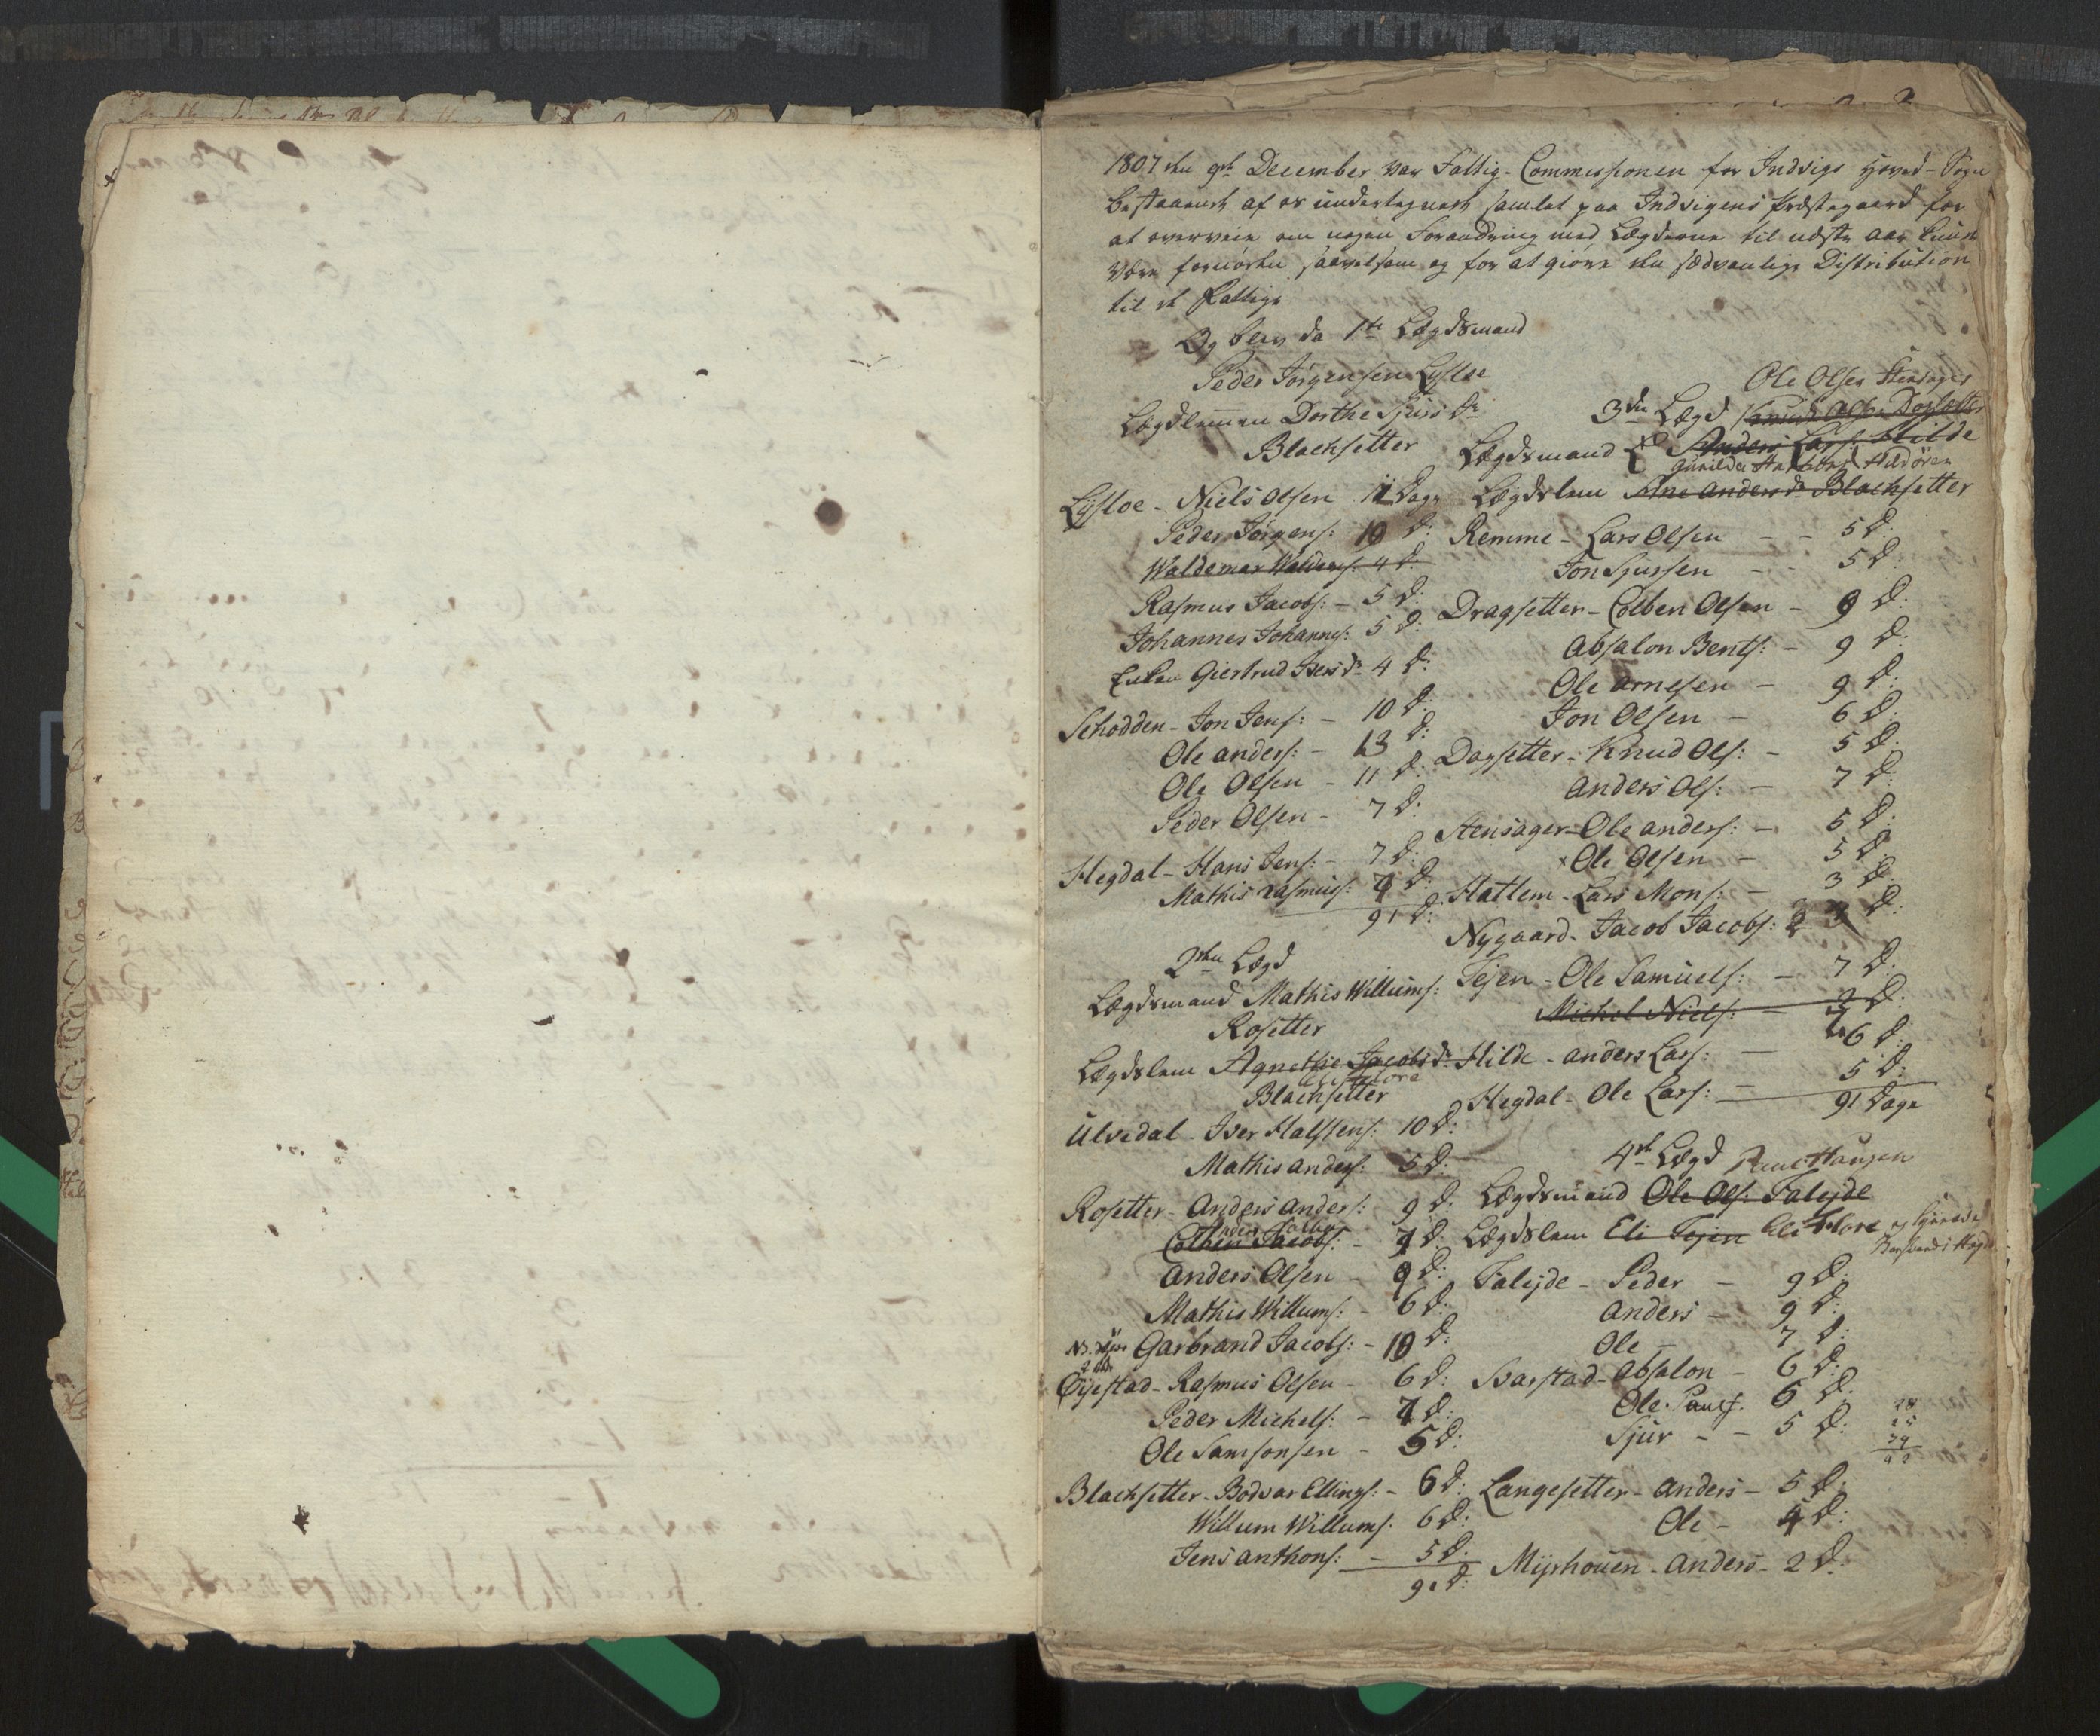 2
1807 den 9de December var Fattig-Commissionen for Indvigs Hoved-Sogn
bestaaende af os undertegnede samlet paa Indvigens Præstegaard for
at overveie om nogen Forandring med Lægderne til næste Aar kunde
være fornøden saavelsom og for at giøre den sædvanlige Distribution
til de Fattige
Og blev da 1te Lægdsmand
Peder Jørgensen Lysloe
Lægdlemmen Dorthe Sjurs dr
Blachsetter
Lysloe - Niels Olsen 11 Dage
Peder Jørgens: 10 D:
Waldemar Waldems: 4 D:
Rasmus Jacobs: - 5 D:
Johannes Johannes: 5 D:
Enken Giertrud Ivers dr 4 D:
Schodden - Jon Jens: - 10 D:
Ole Anders: - 13 D:
Ole Olsen - 11 D:
Peder Olsen - 7 D:
Hegdal - Hans Jens: - 7 D:
Mathis Rasmus: 7 D:
91 D:
2den Lægd
Lægdsmand Mathis Willums:
Rosetter
Lægdslem Agnethe Jacobs dr
Blachsetter
Ulvedal - Iver Halstens: 10 D:
Mathis Anders: 5 D:
Rosetter - Anders Anders: 9 D:
Colben Jacobs: - 7 D:
Anders Olsen - 9 D:
Mathis Willums: - 6 D:
Garbrand Jacobs: - 10 D:
Öyestad - Rasmus Olsen - 6 D:
Peder Michels: - 7 D:
Ole Samsonsen - 5 D:
Blachsetter - Bodvar Ellings: - 6 D:
Willum Willums: 6 D:
Jens Anthons: - 5 D:
91 D:
Ole Olsen Stensager
3die Lægd Knud Olsen Dagsetter
Lægdsmand Anders Lars: Hilde
Gunilda Hildören
Lægdslem Anders dr Blachsetter
Remme - Lars Olsen - - 5 D:
Jon Sjursen - - 5 D:
Dragsetter - Colben Olsen - 9 D:
Absalon Bents: - 9 D:
Ole Arnesen - 9 D:
Jon Olsen - 6 D:
Dagsetter - Knud Ols: - 5 D:
Anders Ols: - 7 D:
Stensager - Ole Anders: - 5 D:
x Ole Olsen - 5 D:
Hattlem - Lars Mons: - 3 D:
Nygaard - Jacob Jacobs: 3 D:
Tejen - Ole Samuels: - 7 D:
Michel Niels: - 2 D:
Hilde - Anders Lars: - 6 D:
Hegdal - Ole Lars: - 5 D:
91 Dage
4de Lægd
Lægdsmand Ole Ols: Falejde
Lægdslem Eli Tejen Eli Flore
Falejde - Peder - 9 D:
Anders - 9 D:
Ole - 7 D:
Svarstad - Absalon - 6 D:
Ole Pauls: 6 D:
Sjur - - 5 D:
Langesetter - Anders - 5 D:
Ole - 4 D:
Myrhouen - Anders - 2 D: